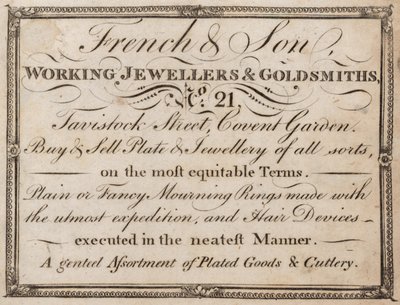 French & Son,
WORKING JEWELLERS & GOLDSMITHS,
No. 21,
Tavistock Street, Covent Garden.
Buy & Sell Plate & Jewellery of all sorts,
on the moſt equitable Terms.
Plain or Fancy Mourning Rings made with
the utmost expedition, and Hair Devices
executed in the neateſt Manner.
A genteel Aſsortment of Plated Goods & Cutlery.